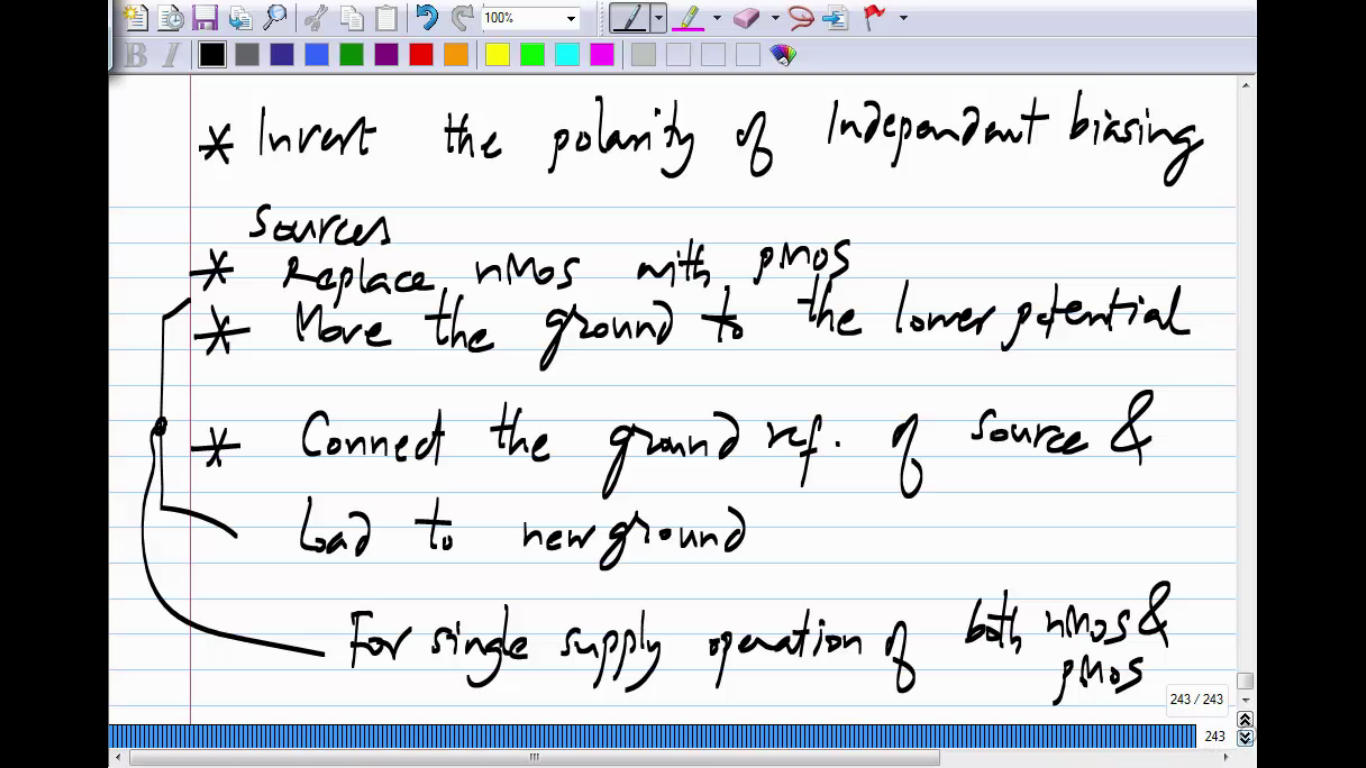 100%
B I
* Invert the polarity of Independent biasing
sources
* Replace nMOS with pMOS
* Move the ground to the lower potential
* Connect the ground ref. of source &
load to new ground
For single supply operation of both nMOS &
pMOS
243 / 243
243